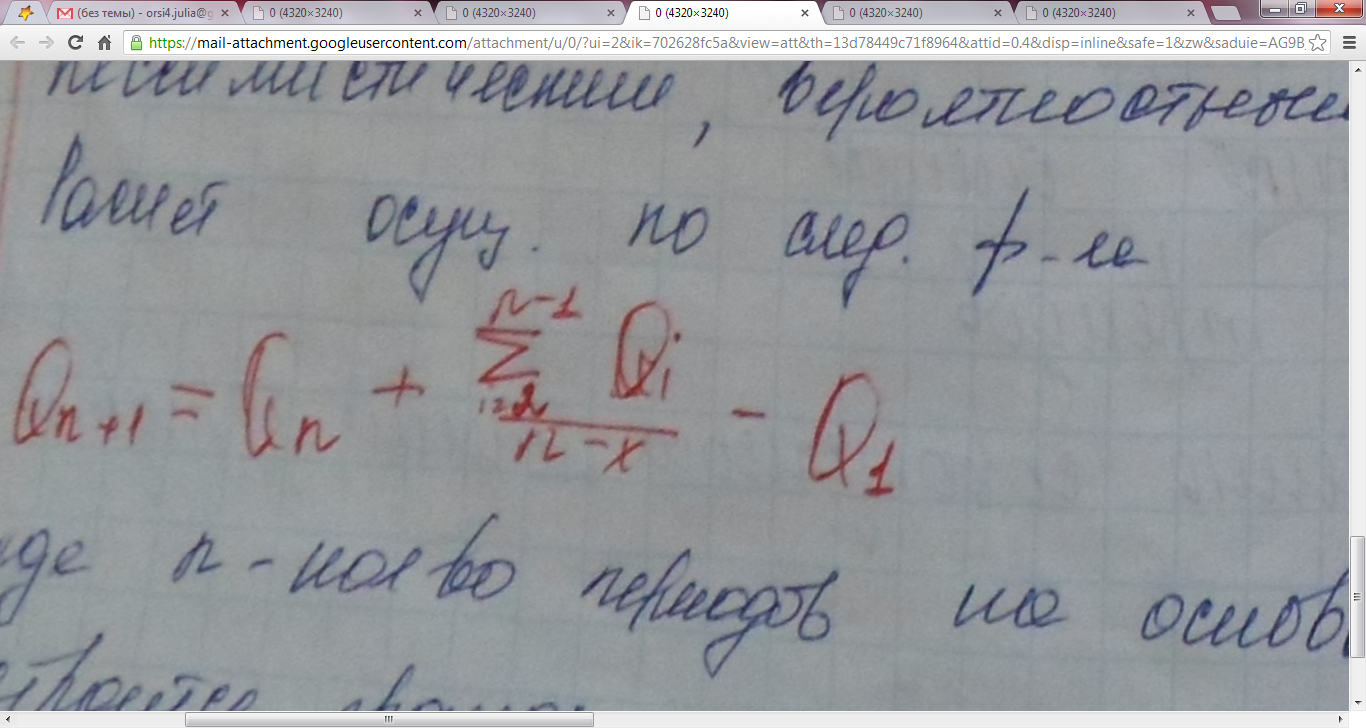 (без темы) - orsi4.julia@g
0 (4320×3240)
0 (4320×3240)
0 (4320×3240)
0 (4320×3240)
0 (4320×3240)
https://mail-attachment.googleusercontent.com/attachment/u/0/?ui=2&ik=702628fc5a&view=att&th=13d78449c71f8964&attid=0.4&disp=inline&safe=1&zw&saduie=AG9B
пессимистический, вероятностный
Расчет осущ. по след. ф-ле
Qn+1 = Qn + (∑ i=2 n-1 Qi)/(n-x) - Q1
где n - кол-во периодов на основ